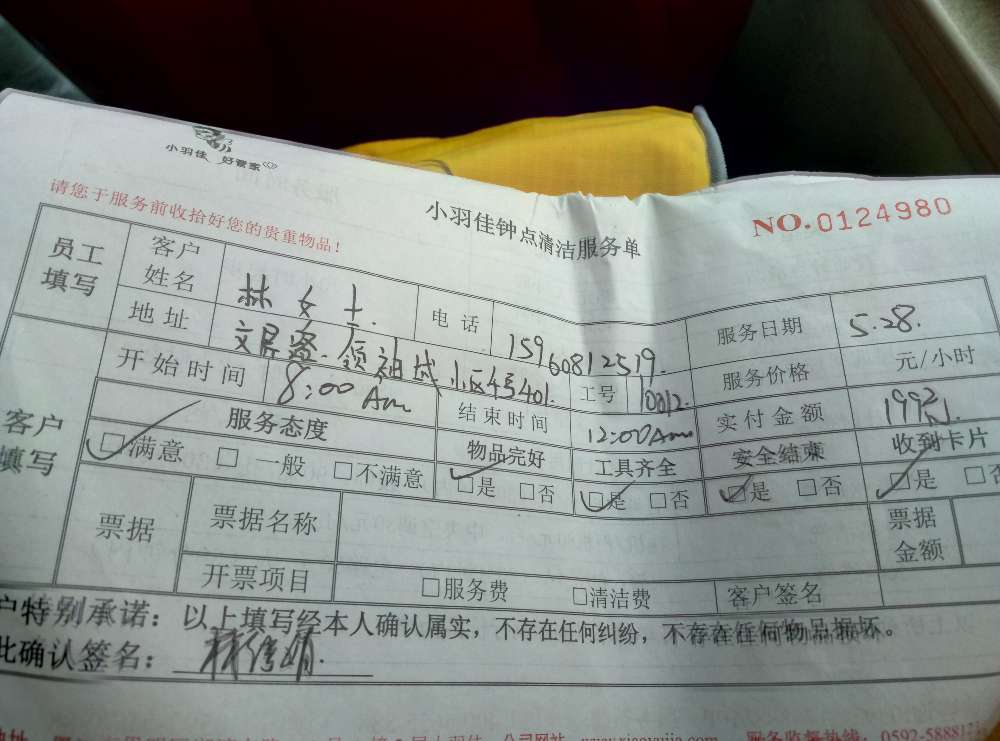 小羽佳 好管家
请您于服务前收拾好您的贵重物品！
小羽佳钟点清洁服务单
NO.0124980
员工填写 客户姓名 林女士. 电话 15960812519. 服务日期 5.28.
地址 领袖城.小区4号401. 工号 10012. 服务价格 元/小时
客户填写 开始时间 8:00 Am 结束时间 12:00Am 实付金额
服务态度 物品完好 工具齐全 安全结束 收到卡片
☑满意 □一般 □不满意 ☑是 □否 ☑是 □否 ☑是 □否 ☑是 □否
票据 票据名称 票据金额
开票项目 □服务费 □清洁费 客户签名
户特别承诺：以上填写经本人确认属实，不存在任何纠纷，不存在任何物品损坏。
此确认签名：
公司网站 www.xiaoyujia.com 服务监督热线：0592-5888